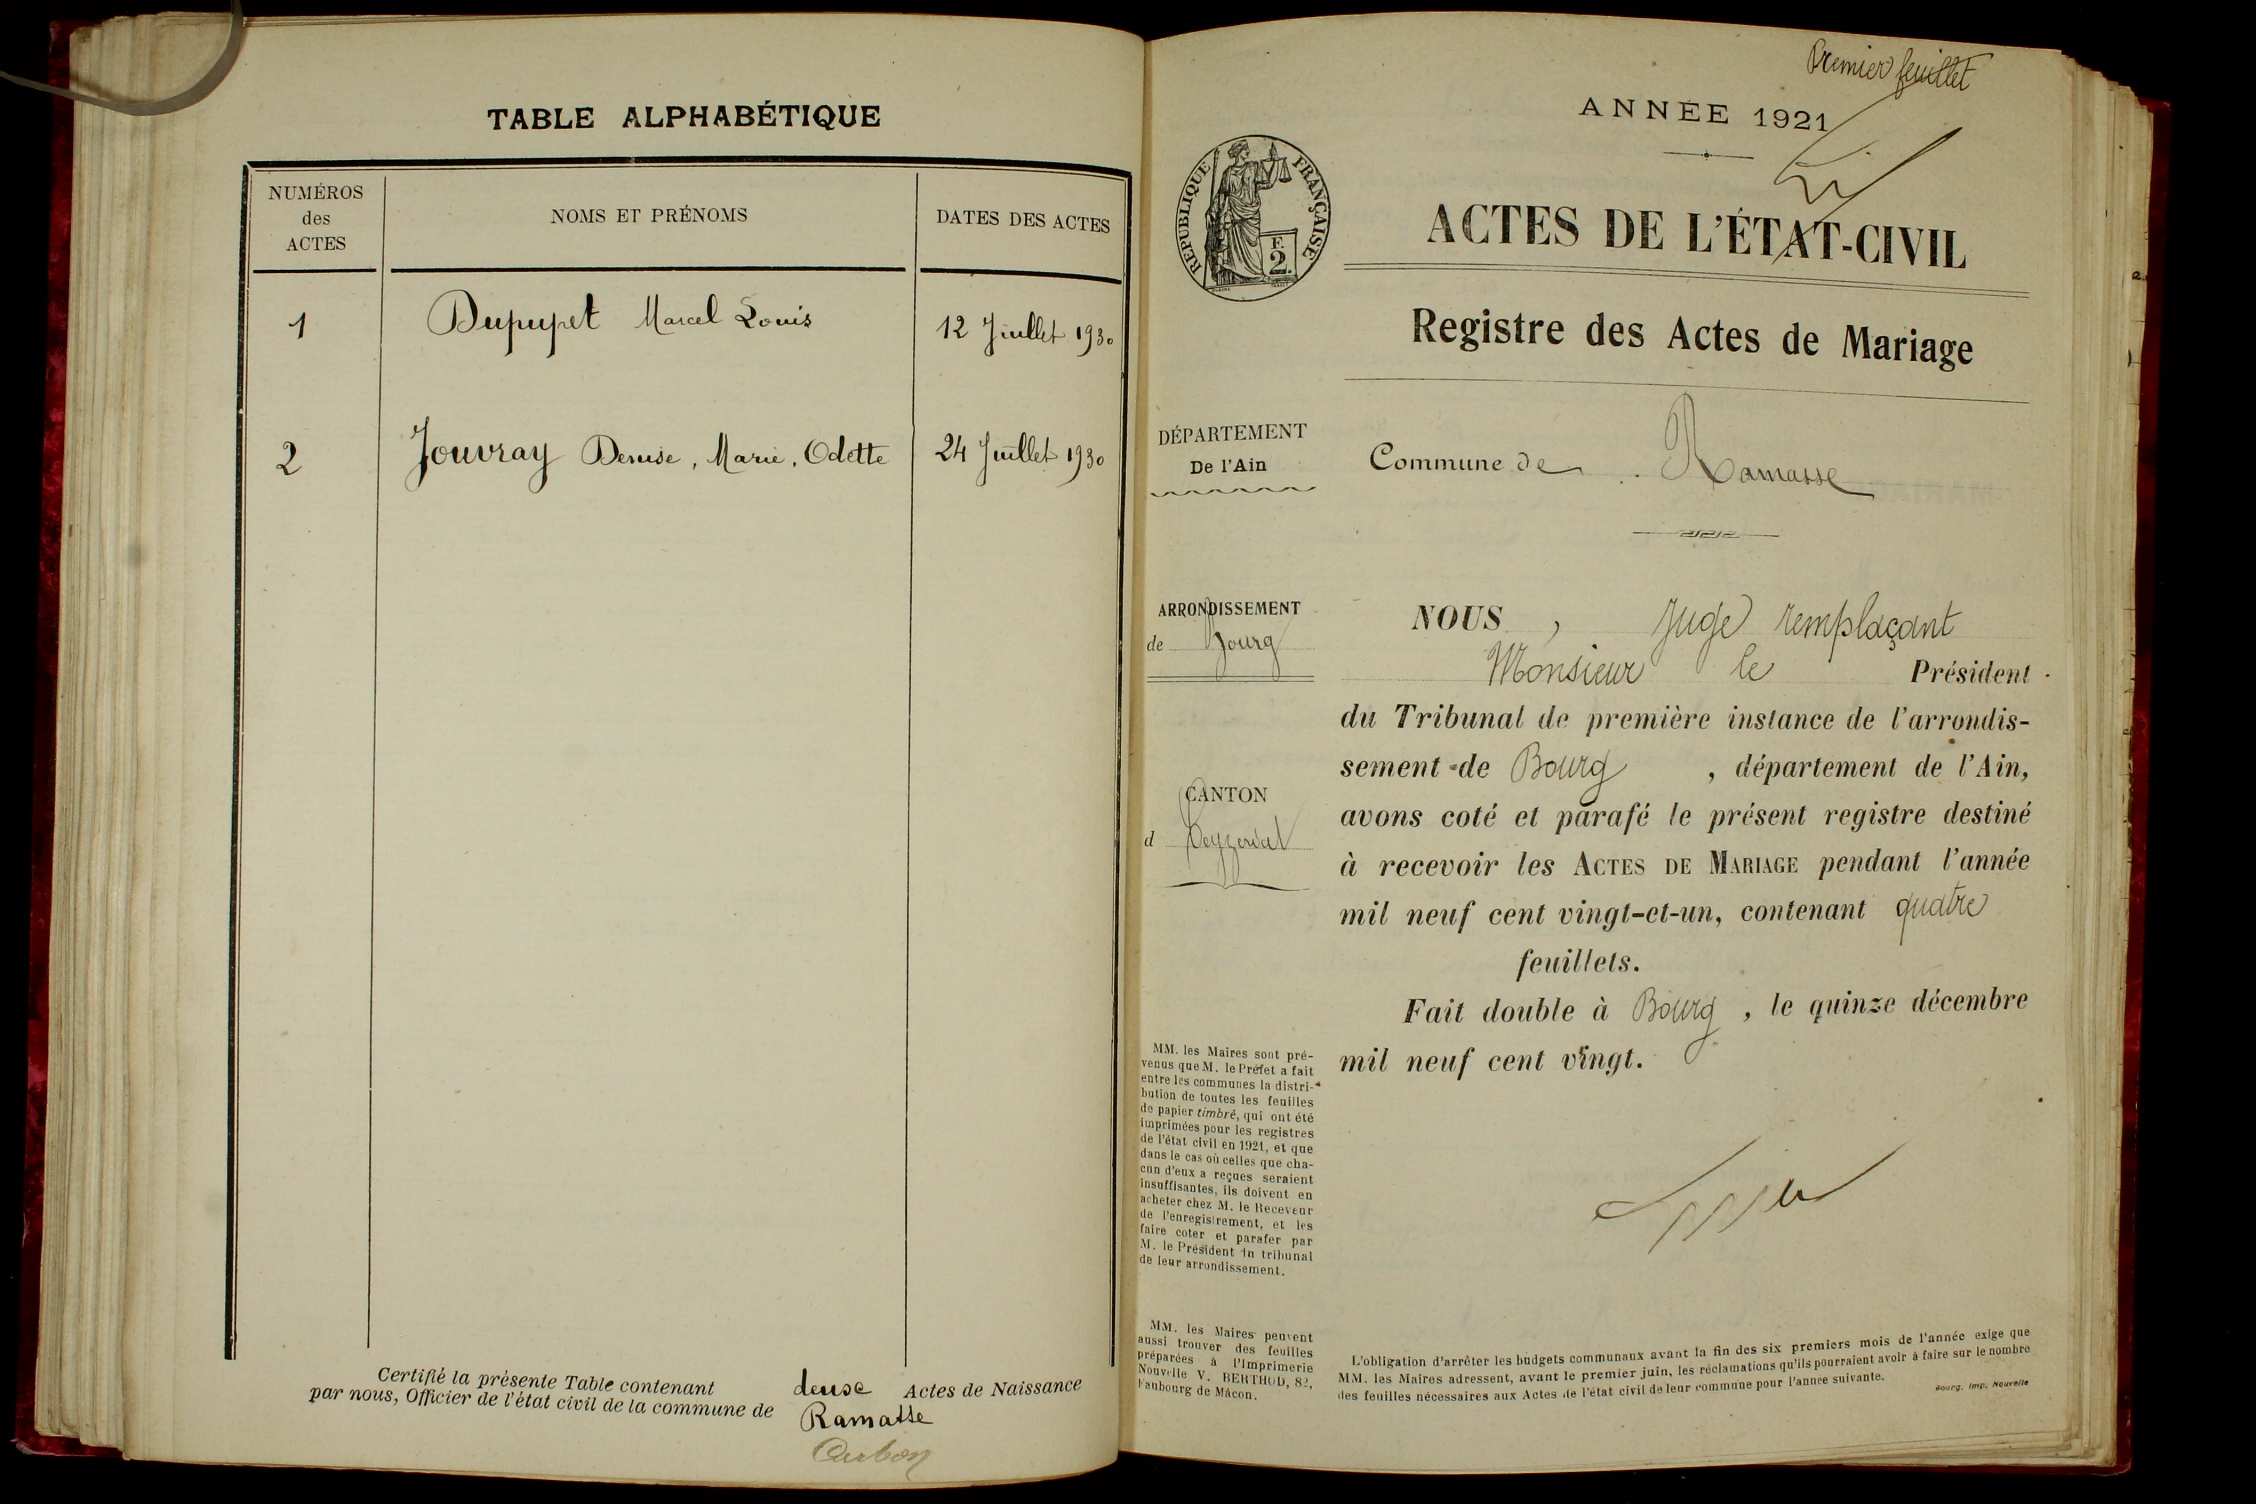 TABLE ALPHABÉTIQUE
NUMÉROS
des
ACTES
NOMS ET PRÉNOMS
DATES DES ACTES
1 Dupupet Marcel Louis 12 Juillet 1930
2 Jouvray Denise, Marie, Odette 24 Juillet 1930
Certifié la présente Table contenant deuse Actes de Naissance
par nous, Officier de l'état civil de la commune de Ramasse
Premier feuillet
ANNÉE 1921
RÉPUBLIQUE FRANÇAISE
F.
2.
ACTES DE L'ÉTAT-CIVIL
Registre des Actes de Mariage
DÉPARTEMENT
De l'Ain
Commune de Ramasse
ARRONDISSEMENT
de Bourg
CANTON
d Ceyzeriat
NOUS, Juge remplaçant
Monsieur le Président
du Tribunal de première instance de l'arrondis-
sement de Bourg, département de l'Ain,
avons coté et parafé le présent registre destiné
à recevoir les ACTES DE MARIAGE pendant l'année
mil neuf cent vingt-et-un, contenant quatre
feuillets.
Fait double à Bourg, le quinze décembre
mil neuf cent vingt.
MM. les Maires sont pré-
venus que M. le Préfet a fait
entre les communes la distri-
bution de toutes les feuilles
de papier timbré, qui ont été
imprimées pour les registres
de l'état civil en 1921, et que
dans le cas où celles que cha-
cun d'eux a reçues seraient
insuffisantes, ils doivent en
acheter chez M. le Receveur
de l'enregistrement, et les
faire coter et parafer par
M. le Président du tribunal
de leur arrondissement.
MM. les Maires peuvent
aussi trouver des feuilles
préparées à l'Imprimerie
Nouvelle V. BERTHOD, 82,
Faubourg de Mâcon.
L'obligation d'arrêter les budgets communaux avant la fin des six premiers mois de l'année exige que
MM. les Maires adressent, avant le premier juin, les réclamations qu'ils pourraient avoir à faire sur le nombre
des feuilles nécessaires aux Actes de l'état civil de leur commune pour l'année suivante.
Bourg, Imp. Nouvelle